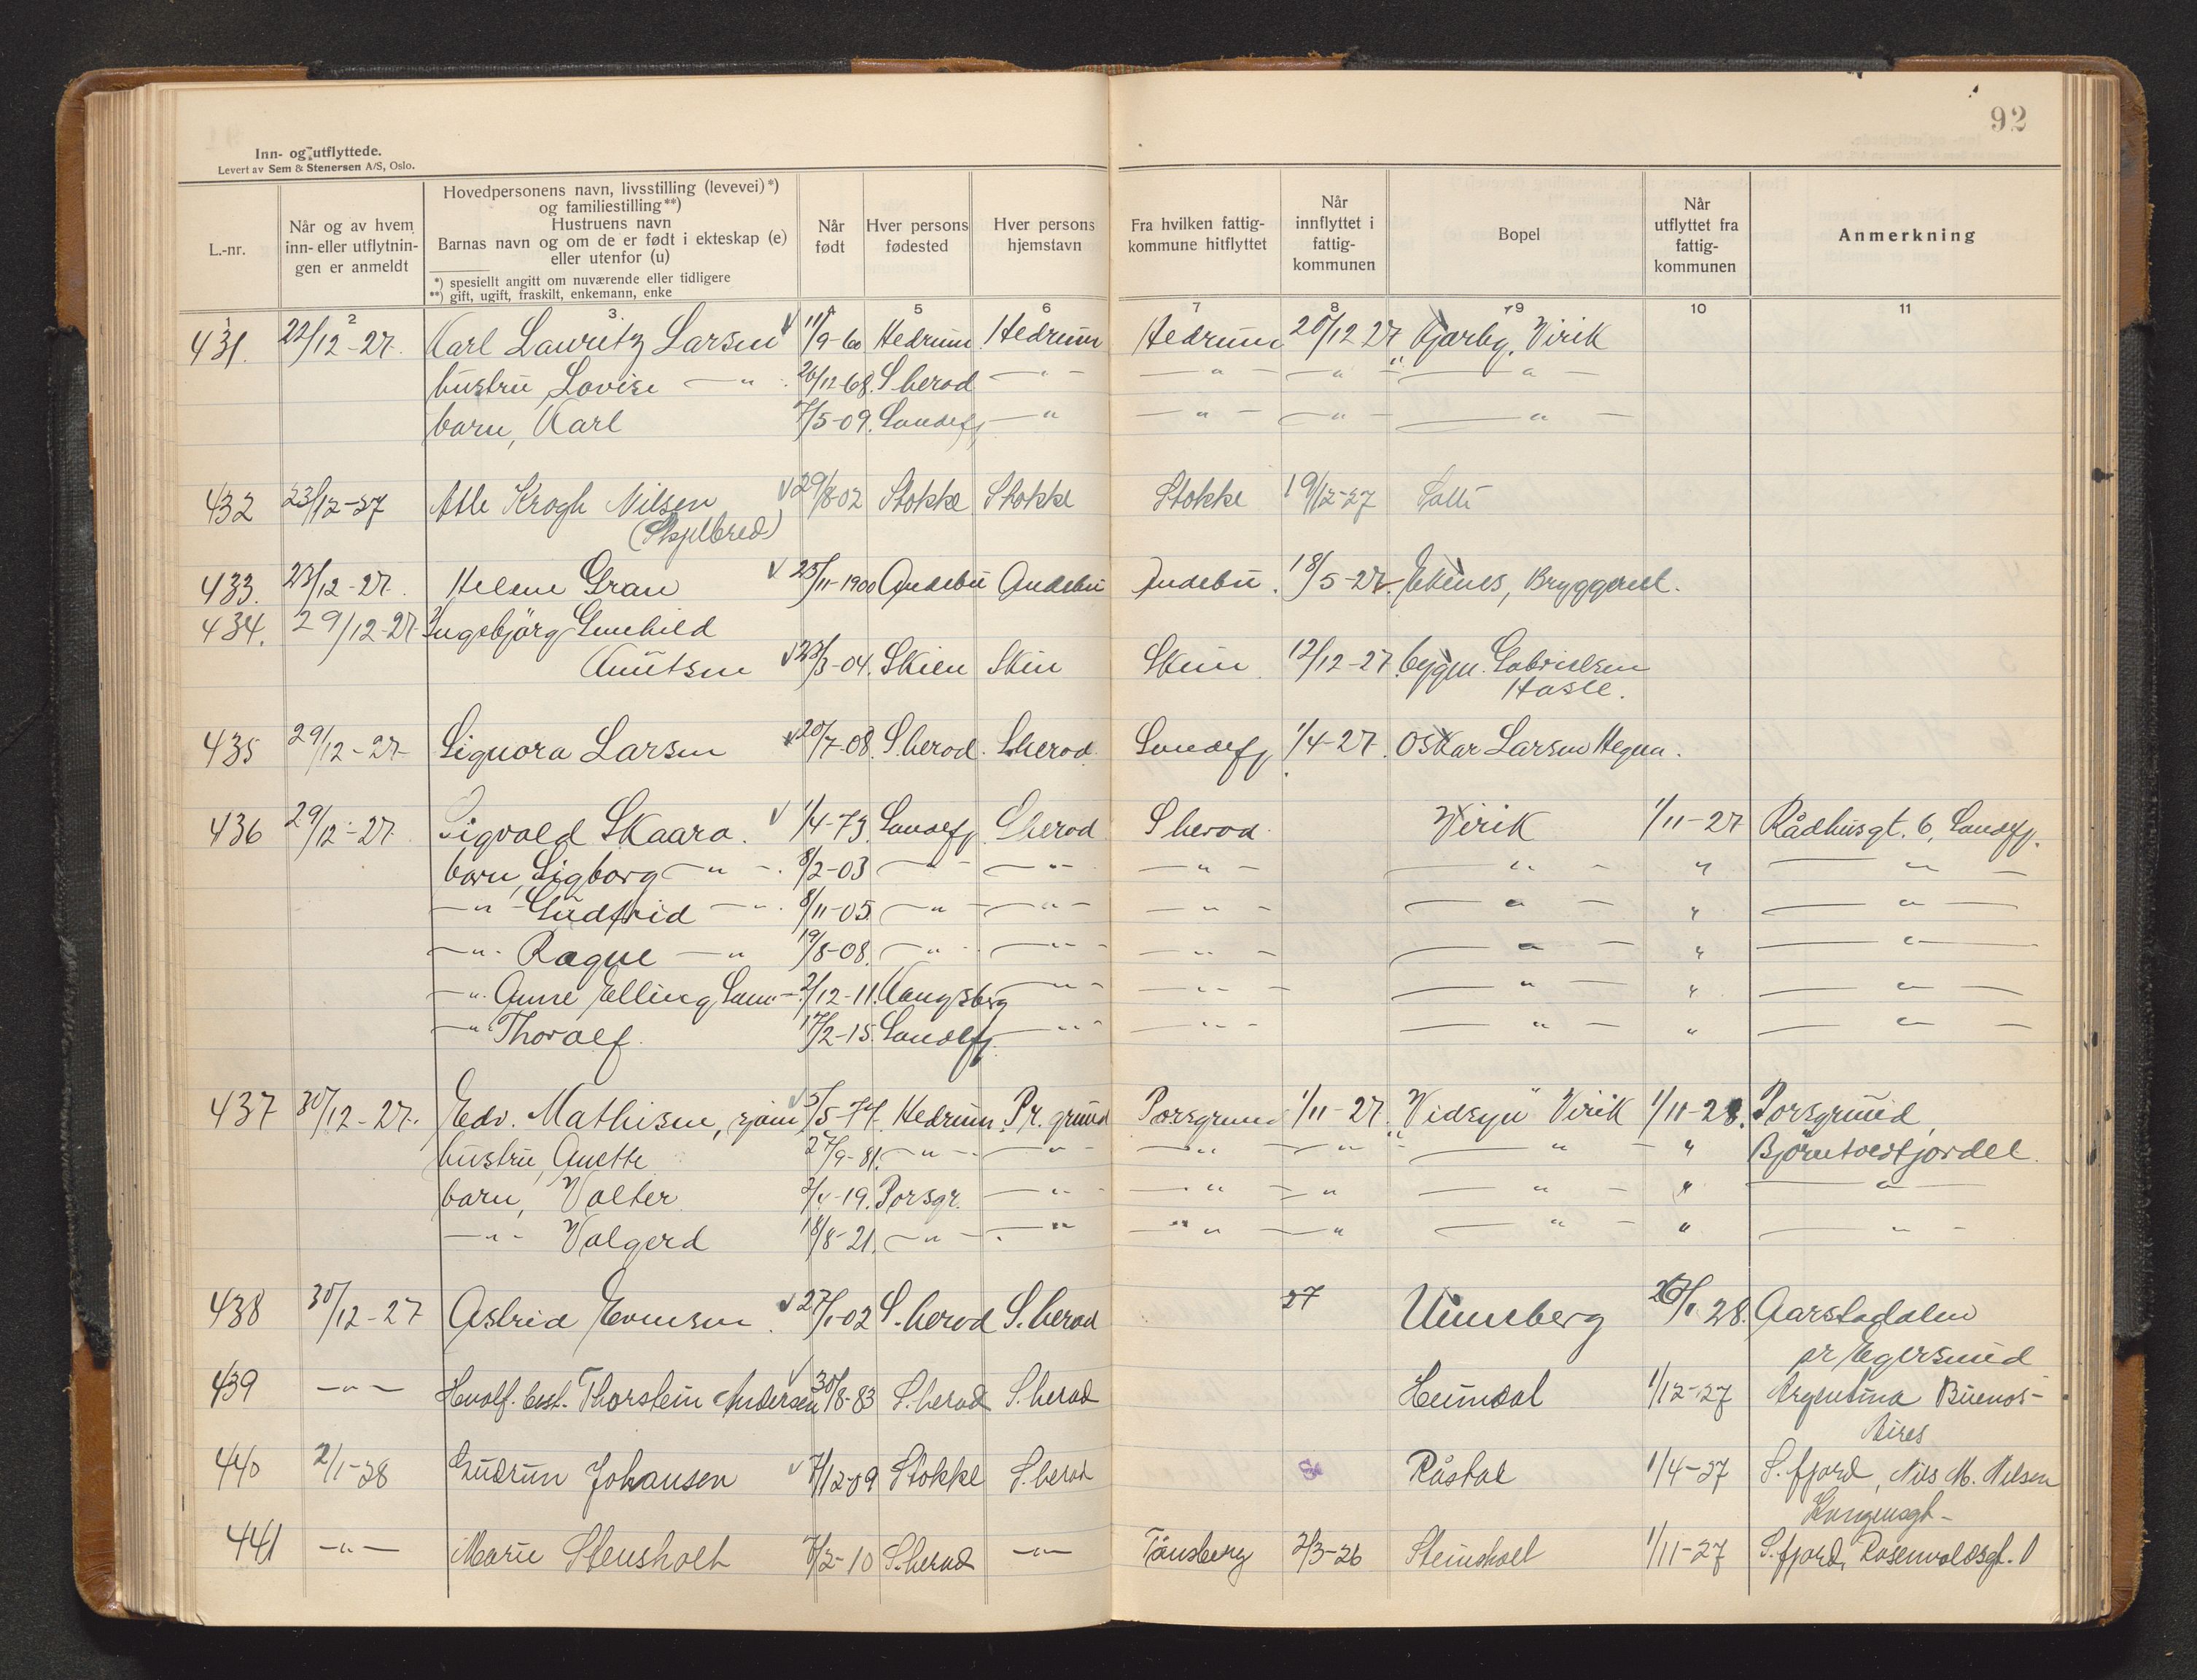 92
Inn- og utflyttede.
Levert av Sem & Stenersen A/S, Oslo.
L.-nr.
Når og av hvem inn- eller utflytnin-gen er anmeldt
Hovedpersonens navn, livsstilling (levevei)*)
og familiestilling**)
Hustruens navn
Barnas navn og om de er født i ekteskap (e)
eller utenfor (u)
*) spesiellt angitt om nuværende eller tidligere
**) gift, ugift, fraskilt, enkemann, enke
Når født
Hver persons fødested
Hver persons hjemstavn
Fra hvilken fattig-kommune hitflyttet
Når innflyttet i fattig-kommunen
Bopel
Når utflyttet fra fattig-kommunen
Anmerkning
1 2 3 4 5 6 7 8 9 10 11
431. 22/12-27. Karl Lauritz Larsen 11/9-60 Hedrum Hedrum Hedrum 20/12 27 "Bjarby" Virik
hustru Lovise — " — 26/12-68. S herad — " — — " — — " — — " —
barn, Karl 7/5-09. Sandefj — " — " — — " — — " —
432 23/12-27 Atle Krogh Nilsen 29/8-02 Stokke Stokke Stokke 19/12-27
(Skjelbred)
433. 23/12-27. Helene Gran 25/11-1900 Andebu Andebu Andebu. 18/5-27. Ekenes, Bryggeriet.
434. 29/12-27. Ingebjörg Gunhild
Knutsen 23/3-04. Skien Skien Skien 12/12-27 bygm. Gabrielsen
Hasle.
435 29/12-27- Signora Larsen 20/7-08. S. herad. S. herad. Sandefj 1/4-27. Oskar Larsen Hegna.
436 29/12-27. Sigvald Skaara. 1/4-73. Sandefj. S herad S herad. Virik 1/11-27 Rådhusgt. 6, Sandefj.
barn, Sigborg — " —. 8/2-03 — " — — " — — " — — " — " — " —
— " — Gudfrid — " —. 8/11-05 — " — — " — — " — — " — " — " —
— " — Ragne — " 19/8-08. — " — — " — — " — — " — " — " —
— " — Anne Elling 2/12-11. Kongsberg — " — — " — — " — " — " —
— " Thoralf. 17/2-15. Sandefj. — " — — " — — " — " — " —
437 30/12-27. Edv. Mathisen, sjöm 5/5-74. Hedrum Pr. grund Porsgrund 1/11-27. "Vidsyn" Virik 1/11-28. Porsgrund,
hustru Anette 27/9-81. — " — — " — — " — — " — — " — " Björntvedtjordet.
barn, Valter 2/4-19. Porsgr. — " — — " — — " — " — " " — " —
— " — Valgerd 18/8-21. — " — — " — " — " — " — " — " —
438 30/12-27 Astrid Evensen. 27/1-02 S. herad S. herad 27 Unneberg 26/1 28. Aarstadalen
pr Egersund
439 — " — Hvalf. best. Thorstein Andersen 30/8-83 S. herad S. herad Heimdal 1/12-27 Argentina Buenos-
Aires
440 2/1-28 Gudrun Johansen 7/12-09 Stokke S. herad Råstad 1/4-27 S. fjord, Nils M. Nilsen
Kongensgt-
441 — " — Marie Stensholt 7/2-10 S. herad — " — Tönsberg 2/3-26 Stensholt 1/11-27 S. fjord, Rosenvoldsgt. 1